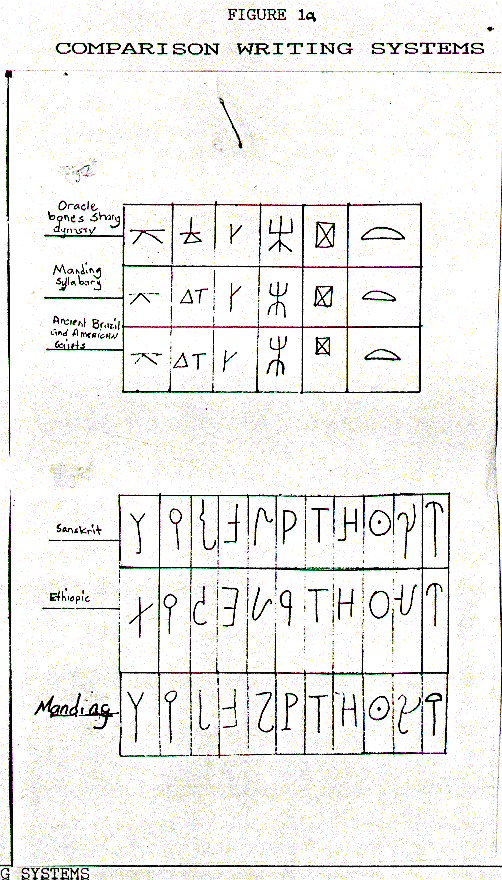 FIGURE 1a
COMPARISON WRITING SYSTEMS
Oracle
bones Shang
dynasty
Manding
Syllabary
Ancient Brazil
and American
Sanskrit
Ethiopic
Manding
G SYSTEMS